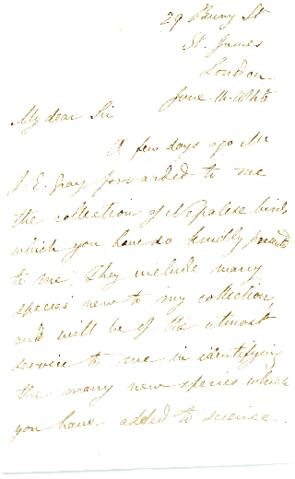 29 Bury St
St. James
London
June
My dear Sir
A few days ago Mr
J. E. Gray forwarded to me
the collection of Nepalese birds
which you have so kindly presented
to me. They include many
species new to my collection,
and will be of the utmost
service to me in identifying
the many new species which
you have added to science.